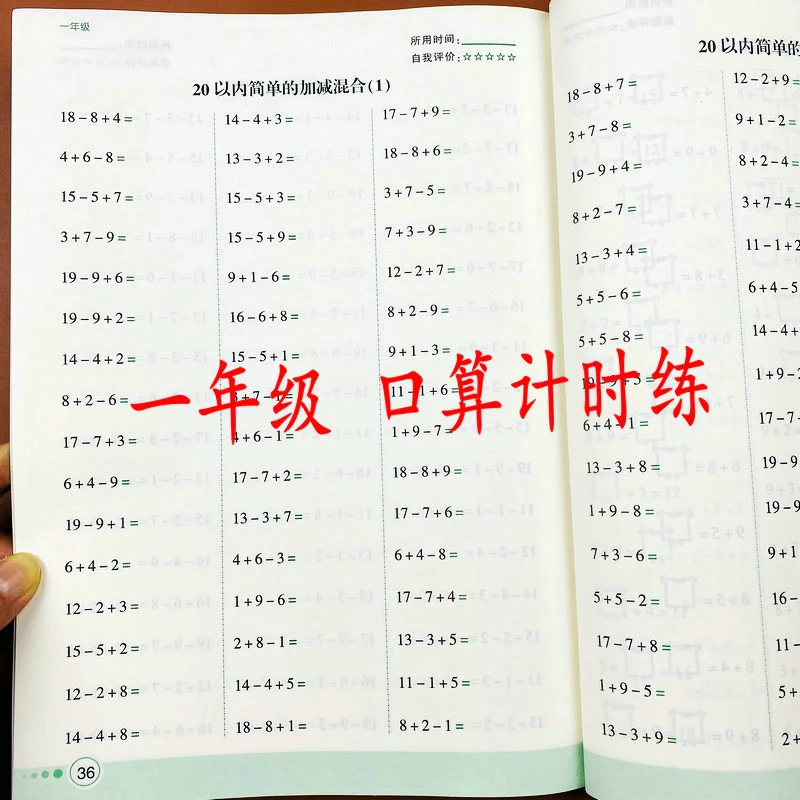 一年级
所用时间:
自我评价:☆☆☆☆☆
20以内简单的加减混合(1)
18-8+4= 14-4+3= 17-7+9=
4+6-8= 13-3+2= 18-8+6=
15-5+7= 15-5+3= 3+7-5=
3+7-9= 15-5+9= 7+3-9=
19-9+6= 9+1-6= 12-2+7=
19-9+2= 16-6+8= 8+2-9=
14-4+2= 15-5+1= 9+1-3=
8+2-6= 3+7-1= 11-1+6=
17-7+3= 4+6-1= 1+9-7=
6+4-9= 17-7+2= 18-8+9=
19-9+1= 13-3+7= 17-7+6=
6+4-2= 4+6-3= 6+4-8=
12-2+3= 1+9-6= 17-7+4=
15-5+2= 2+8-1= 13-3+5=
12-2+8= 14-4+5= 11-1+5=
14-4+8= 18-8+1= 8+2-1=
36
一年级 口算计时练
20以内简单的
18-8+7= 12-2+9=
3+7-8= 9+1-2=
19-9+4= 8+2-4=
8+2-7= 3+7-4=
13-3+4= 11-1+2
5+5-6= 6+4-5
5+5-8= 14-4+
19-9+5= 1+9-2
6+4-1= 17-7
13-3+8= 19-9
1+9-8= 19-9
7+3-6= 9+1
5+5-2= 16-
17-7+8= 11-
1+9-5= 5+
13-3+9= 2+